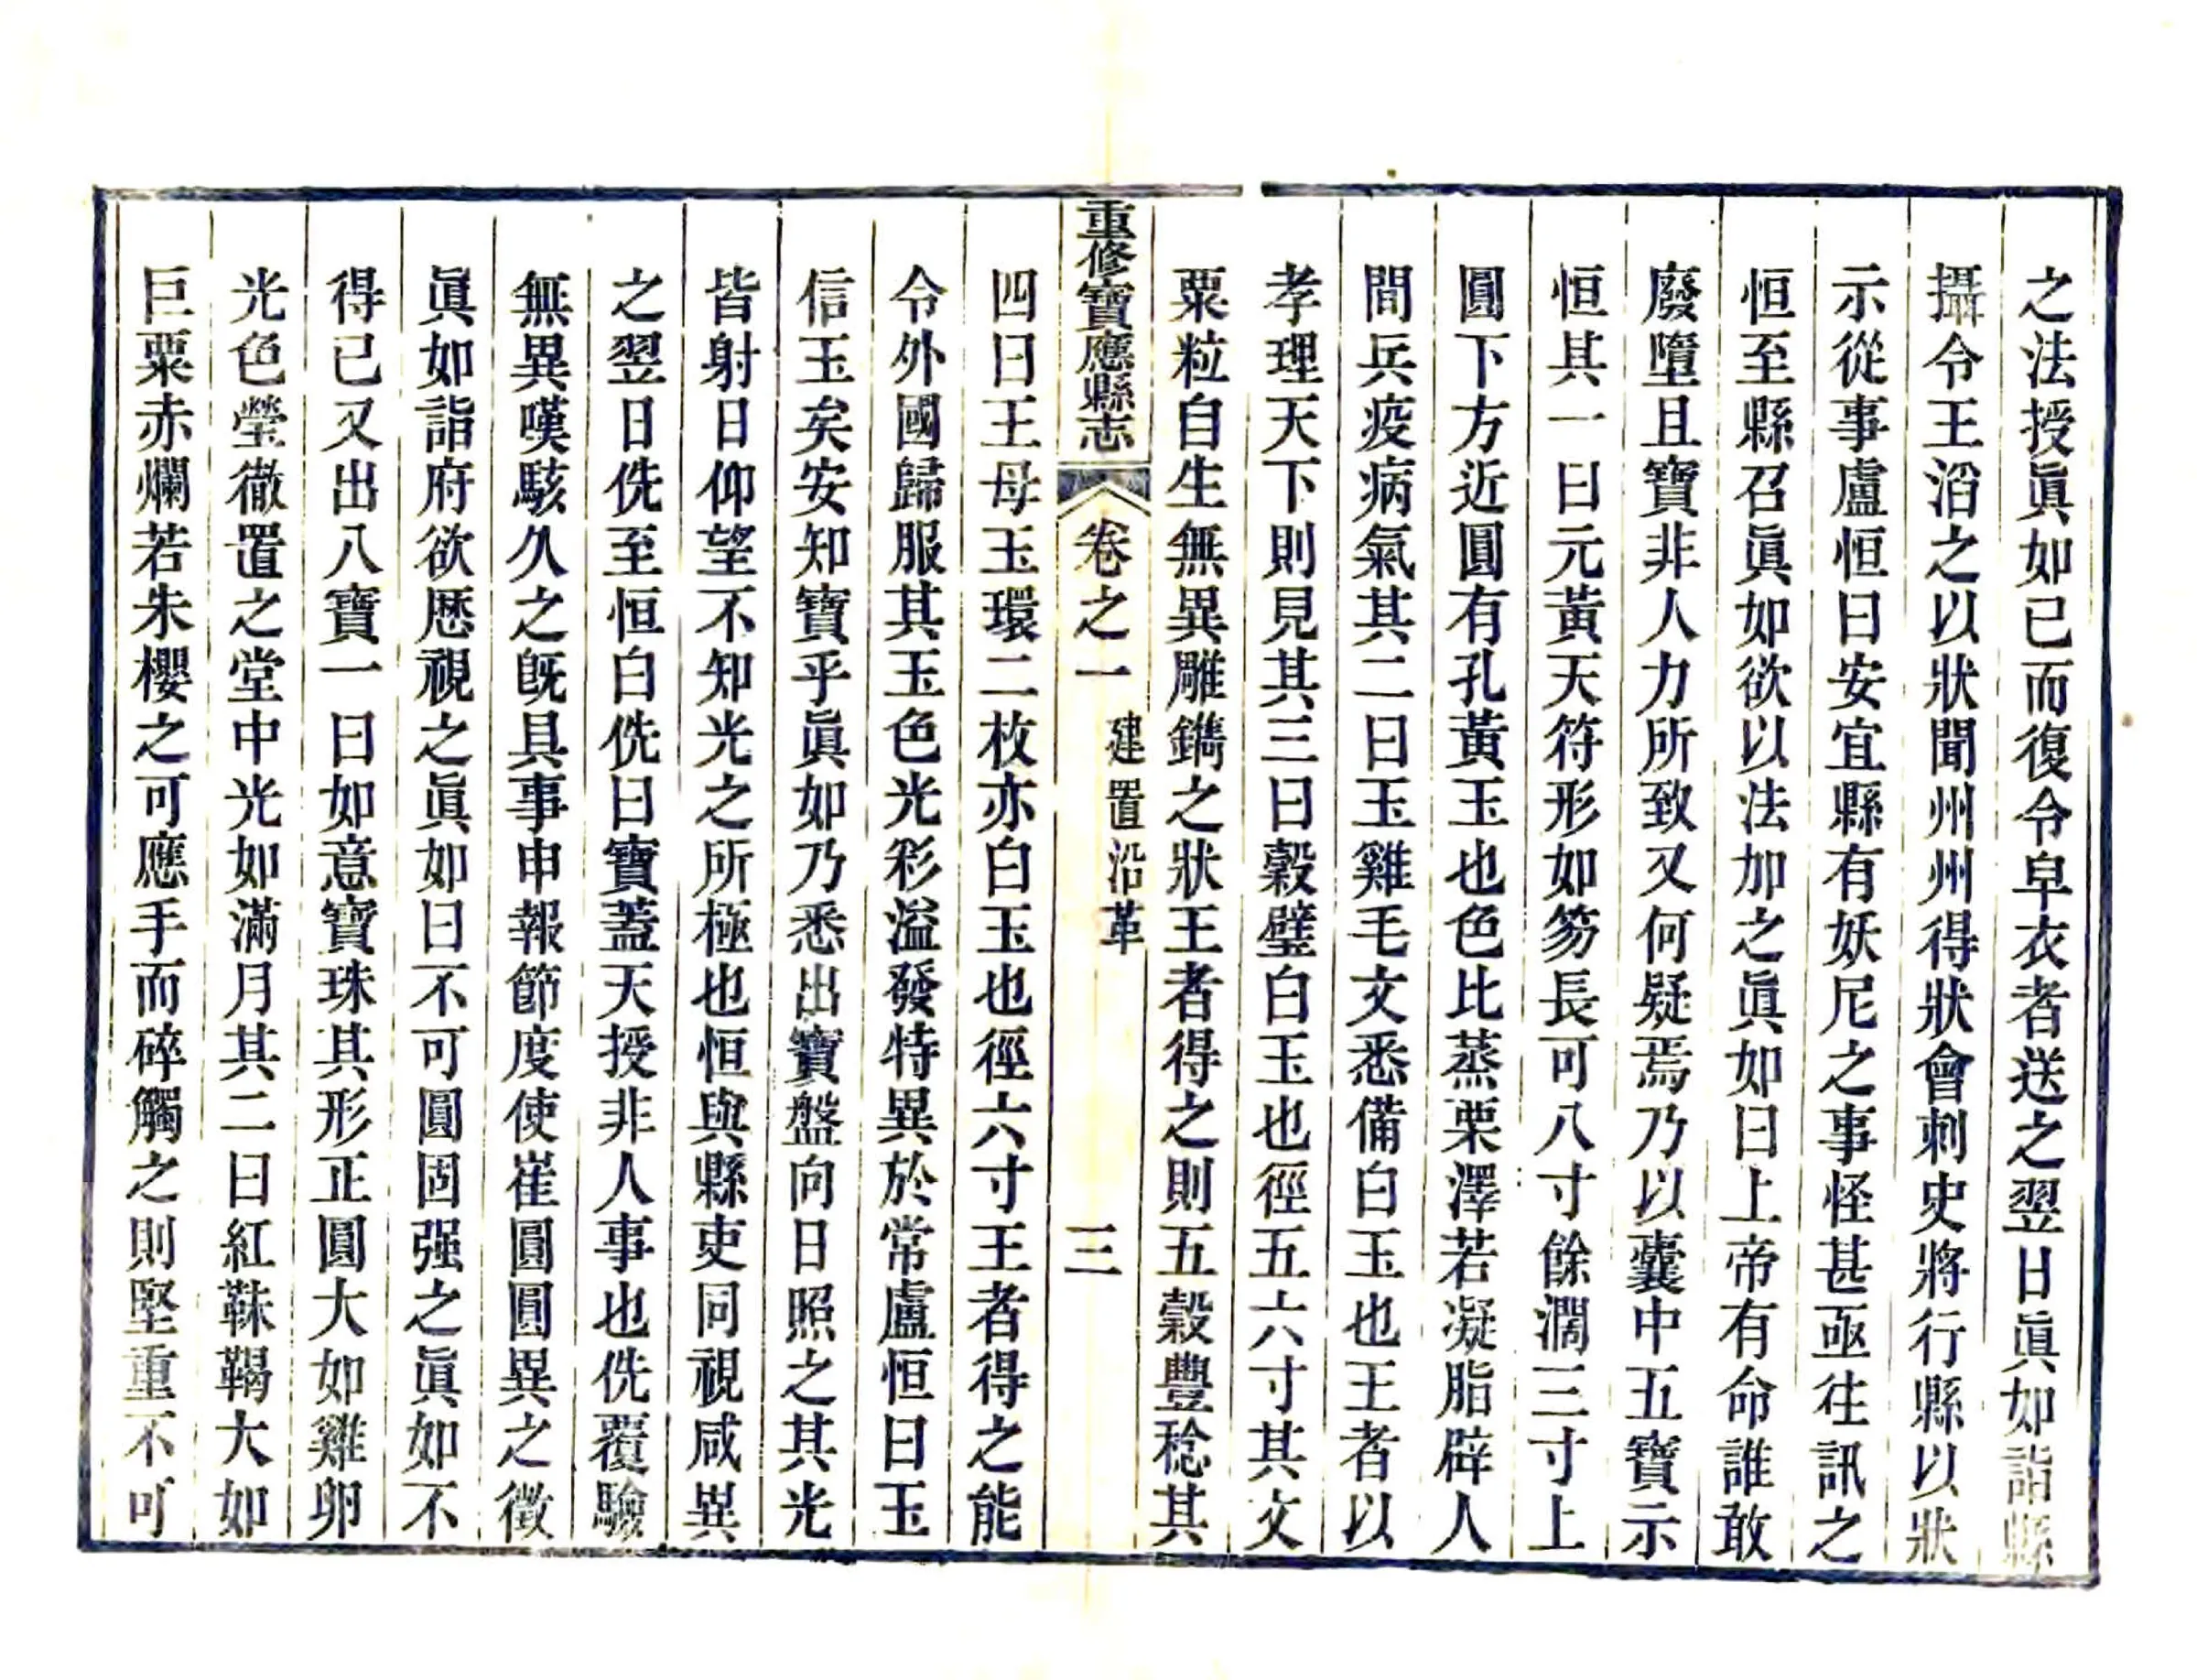 之法授眞如已而復令皁衣者送之翌日眞如詣縣
攝令王滔之以狀聞州州得狀會刺史將行縣以狀
示從事盧恒曰安宜縣有妖尼之事怪甚亟往訊之
恒至縣召眞如欲以法加之眞如曰上帝有命誰敢
廢墮且寶非人力所致又何疑焉乃以囊中五寶示
恒其一曰元黃天符形如笏長可八寸餘濶三寸上
圓下方近圓有孔黃玉也色比蒸栗澤若凝脂辟人
間兵疫病氣其二曰玉雞毛文悉備白玉也王者以
孝理天下則見其三曰穀璧白玉也徑五六寸其文
粟粒自生無異雕鐫之狀王者得之則五穀豐稔其
重修寶應縣志 卷之一 建置沿革 三
四曰王母玉環二枚亦白玉也徑六寸王者得之能
令外國歸服其玉色光彩溢發特異於常盧恒曰玉
信玉矣安知寶乎眞如乃悉出寶盤向日照之其光
皆射日仰望不知光之所極也恒與縣吏同視咸異
之翌日侁至恒白侁曰寶蓋天授非人事也侁覆驗
無異嘆駭久之旣具事申報節度使崔圓圓異之徵
眞如詣府欲歷視之眞如曰不可圓固强之眞如不
得已又出八寶一曰如意寶珠其形正圓大如雞卵
光色瑩徹置之堂中光如滿月其二曰紅靺鞨大如
巨粟赤爛若朱櫻之可應手而碎觸之則堅重不可